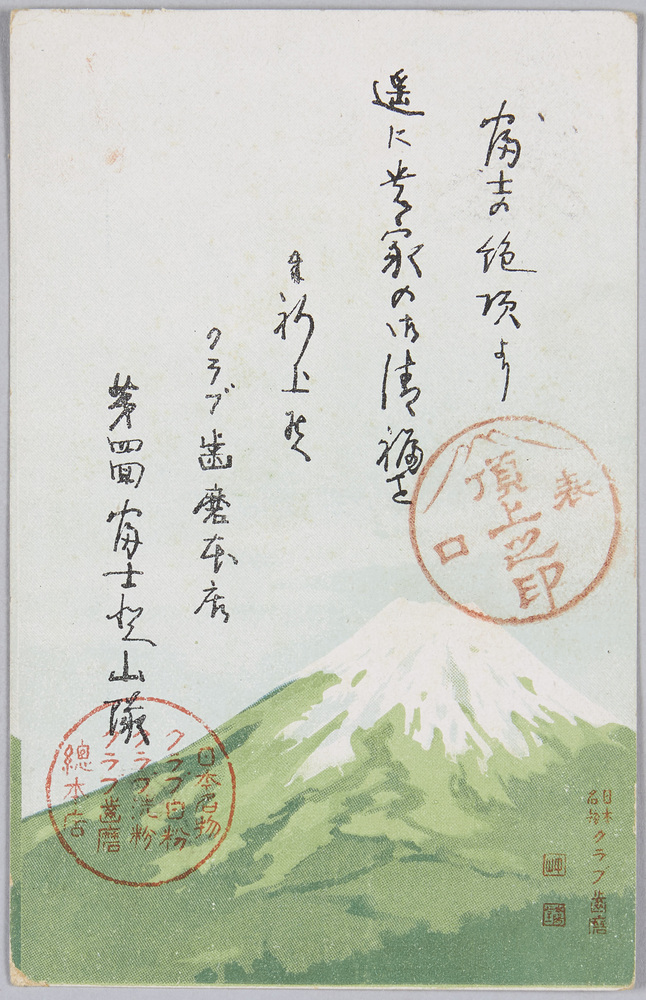 富士の絶頂より
遥に貴家の御清福を
奉祈上候
クラブ歯磨本店
第四回富士登山隊
表
頂上之印
口
日本名物
クラブ白粉
クラブ洗粉
クラブ歯磨
總本店
日本
名物
クラブ歯磨